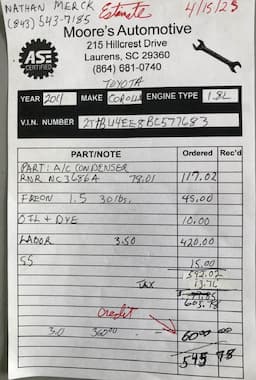 NATHAN MERCK Estimate 4/15/23
(843) 543-7185
Moore's Automotive
215 Hillcrest Drive
Laurens, SC 29360
(864) 681-0740
ASE
CERTIFIED
TOYOTA
YEAR 2011 MAKE COROLLA ENGINE TYPE 1.8L
V.I.N. NUMBER 2T1BU4EE8BC577683
PART/NOTE Ordered Rec'd
PART: A/C CONDENSER
RNR NC3686A 78.01 117.02
FREON 1.5 30 lbs. 45.00
OIL + DYE 10.00
LABOR 3.50 420.00
SS 15.00
TAX 13.76
605.78
Credit
3.0 360.00 60.00
545 78